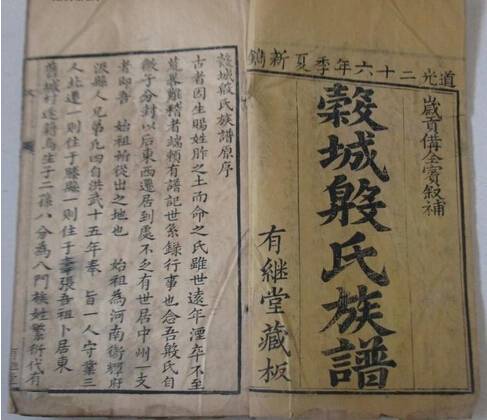 道光二十六年季夏新鐫
歲貢備仝賓叙補
穀城殷氏族譜
有繼堂藏板
穀城殷氏族譜原序
古者因生賜姓胙之土而命之氏雖世遠年湮卒不至
荒界難稽者端賴有譜記世系錄行事也念吾殷氏自
微子分封以后東西遷居到處不乏有世居中州一支
者即吾 始祖所從出之地也 始祖為河南衛輝府
汲縣人兄弟九四自洪武十五年奉 旨一人守業三
人北遷一則住于滕縣一則住于 張吾祖卜居東
舊城村遂籍焉生子二孫八分為八門族姓繁衍代有